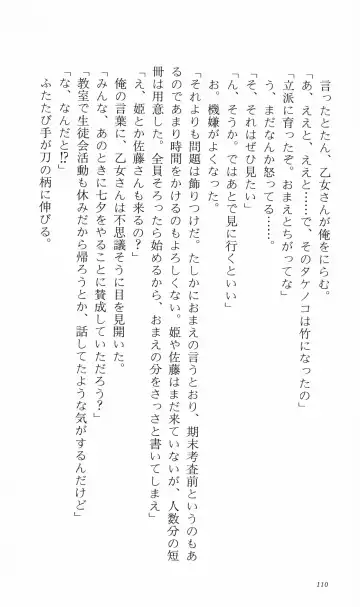 言ったとたん、乙女さんが俺をにらむ。
「あ、ええと、ええと……で、そのタケノコは竹になったの」
「立派に育ったぞ。おまえとちがってな」
う、まだなんか怒ってる……。
「そ、それはぜひ見たい」
「ん、そうか。ではあとで見に行くといい」
お。機嫌がよくなった。
「それよりも問題は飾りつけだ。たしかにおまえの言うとおり、期末考査前というのもあ
るのであまり時間をかけるのもよろしくない。姫や佐藤はまだ来ていないが、人数分の短
冊は用意した。全員そろったら始めるから、おまえの分をさっさと書いてしまえ」
「え、姫とか佐藤さんも来るの?」
俺の言葉に、乙女さんは不思議そうに目を見開いた。
「みんな、あのときに七夕をやることに賛成していただろう?」
「教室で生徒会活動も休みだから帰ろうとか、話してたような気がするんだけど」
「な、なんだと!?」
ふたたび手が刀の柄に伸びる。
110